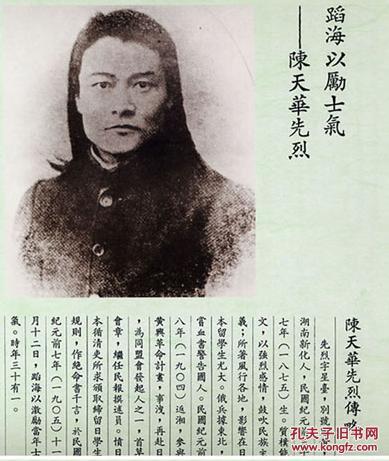 蹈海以勵士氣
——陳天華先烈
陳天華先烈傳略
先烈字星臺，別號
湖南新化人，民國紀元前
七年（一八七五）生。質樸
文，以強烈感情，鼓吹民族主
義；所著風行各地，影響在日
本留學生尤大。俄兵據東北，
嘗血書警告國人。民國紀元前
八年（一九〇四）返湘，參與
黃興革命計畫，事洩，再赴日
，為同盟會發起人之一，首草
會章，繼任民報撰述員。憤日
本循清吏所求頒取締留日學生
規則，作絕命書千言，於民國
紀元前七年（一九〇五）十一
月十二日，蹈海以激勵當年士
氣。時年三十有一。
孔夫子旧书网
KONGFZ.COM